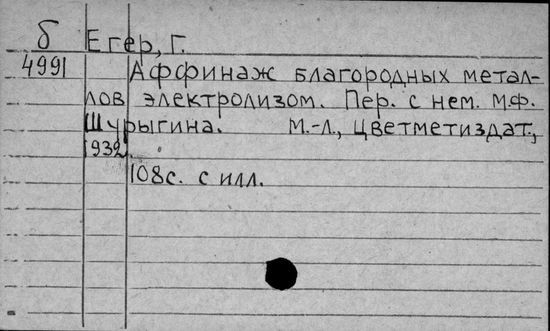 б Егер, Г.
4991 Аффинаж благородных метал-
лов электролизом. Пер. с нем. М.Ф.
Шурыгина. М.-Л., Цветметиздат,
1932.
108с. с илл.